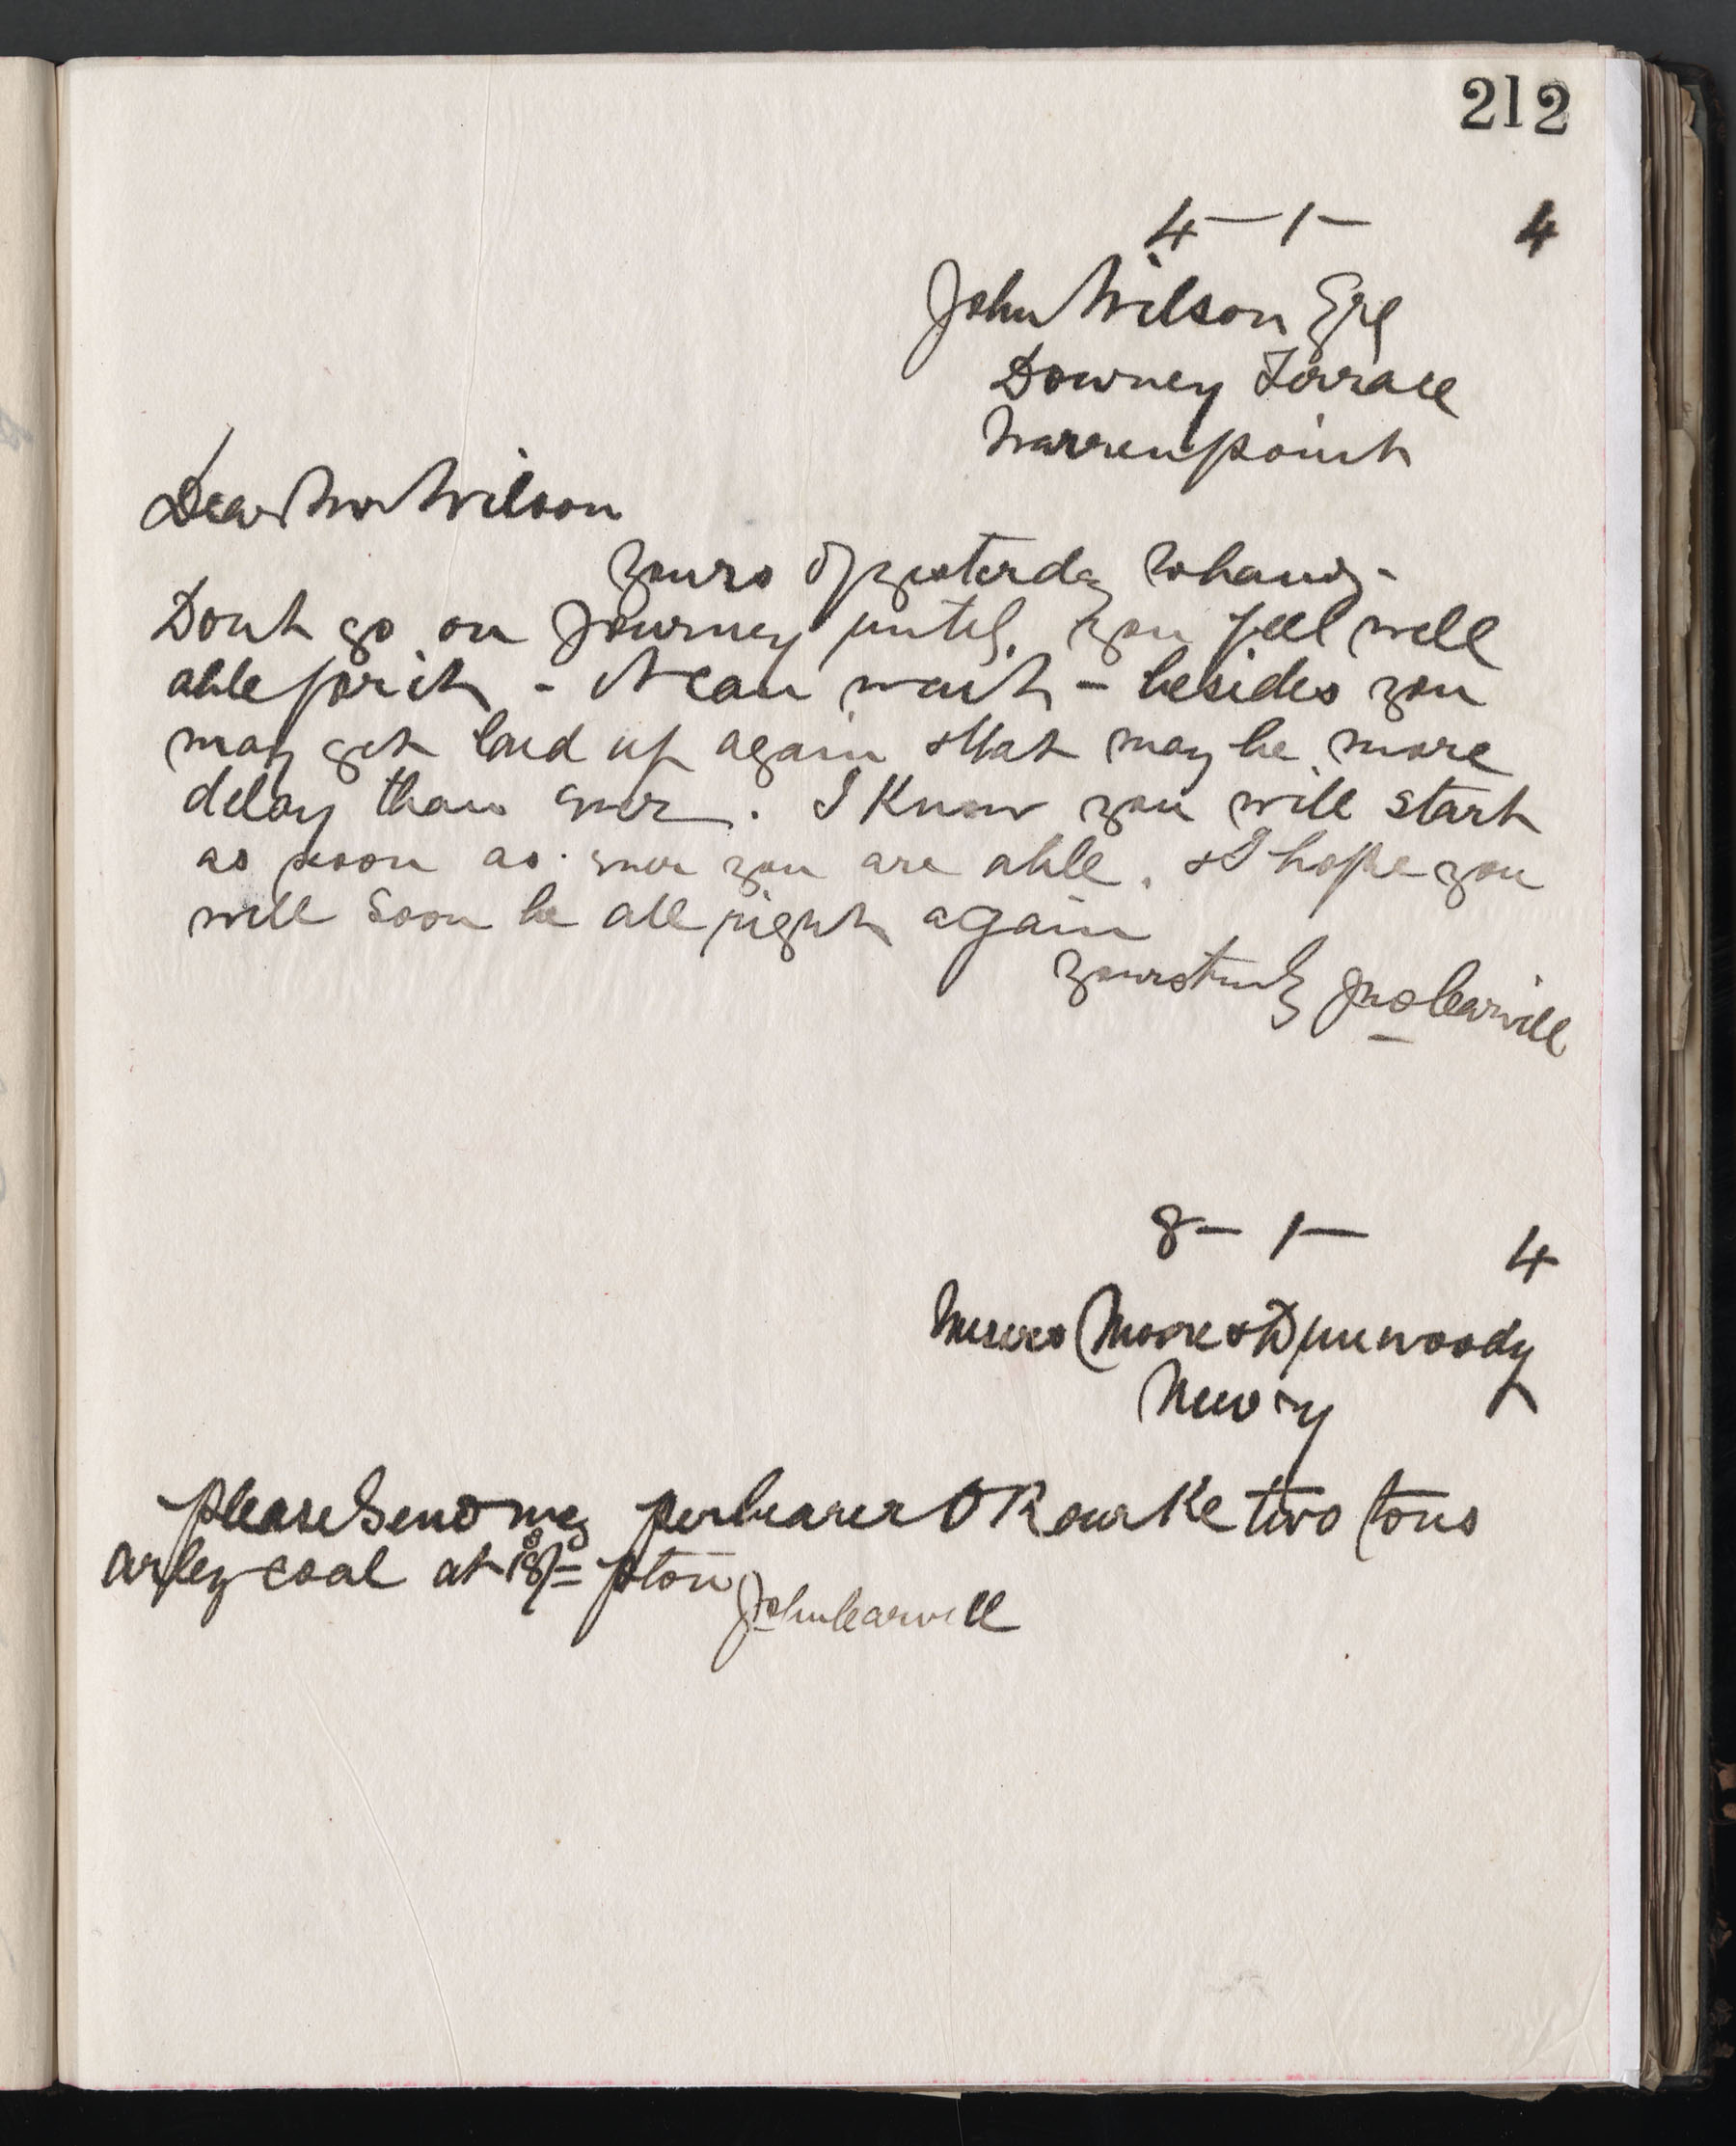 212
4 - 1 - 4
John Wilson Esq
Downey Terrace
Warrenpoint
Dear Mr Wilson
Yours of yesterday to hand -
Dont go on Journey until you feel well
able for it - It can wait - besides you
may get laid up again & that may be more
delay than ever. I Know you will start
as soon as ever you are able. & I hope you
will soon be all right again
Yours truly Jno Carvill
8 - 1 - 4
Messrs Moore & Dunwoody
Newry
please send me per bearer O Rourke two tons
arley coal at 18/= p ton
John Carvill